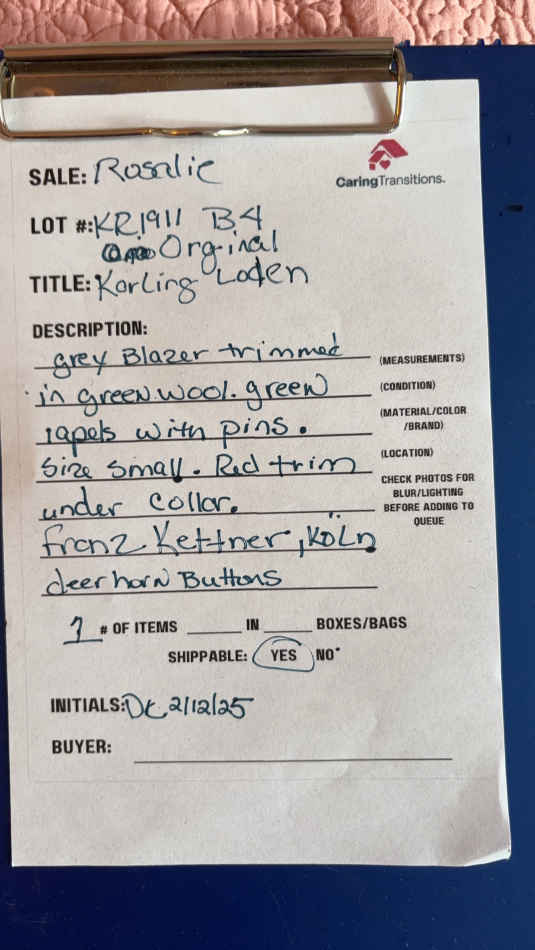 CaringTransitions.
SALE: Rosalie
LOT #: KR1911 B4
Orginal
TITLE: Karling Loden
DESCRIPTION:
grey Blazer trimmed
(MEASUREMENTS)
in green wool. green
(CONDITION)
lapels with pins.
(MATERIAL/COLOR
/BRAND)
size small. Red trim
(LOCATION)
under collar.
CHECK PHOTOS FOR
BLUR/LIGHTING
BEFORE ADDING TO
QUEUE
Franz Kettner, Köln
deer horn Buttons
1 # OF ITEMS ______ IN ______ BOXES/BAGS
SHIPPABLE: YES NO*
INITIALS: DK 2/12/25
BUYER: